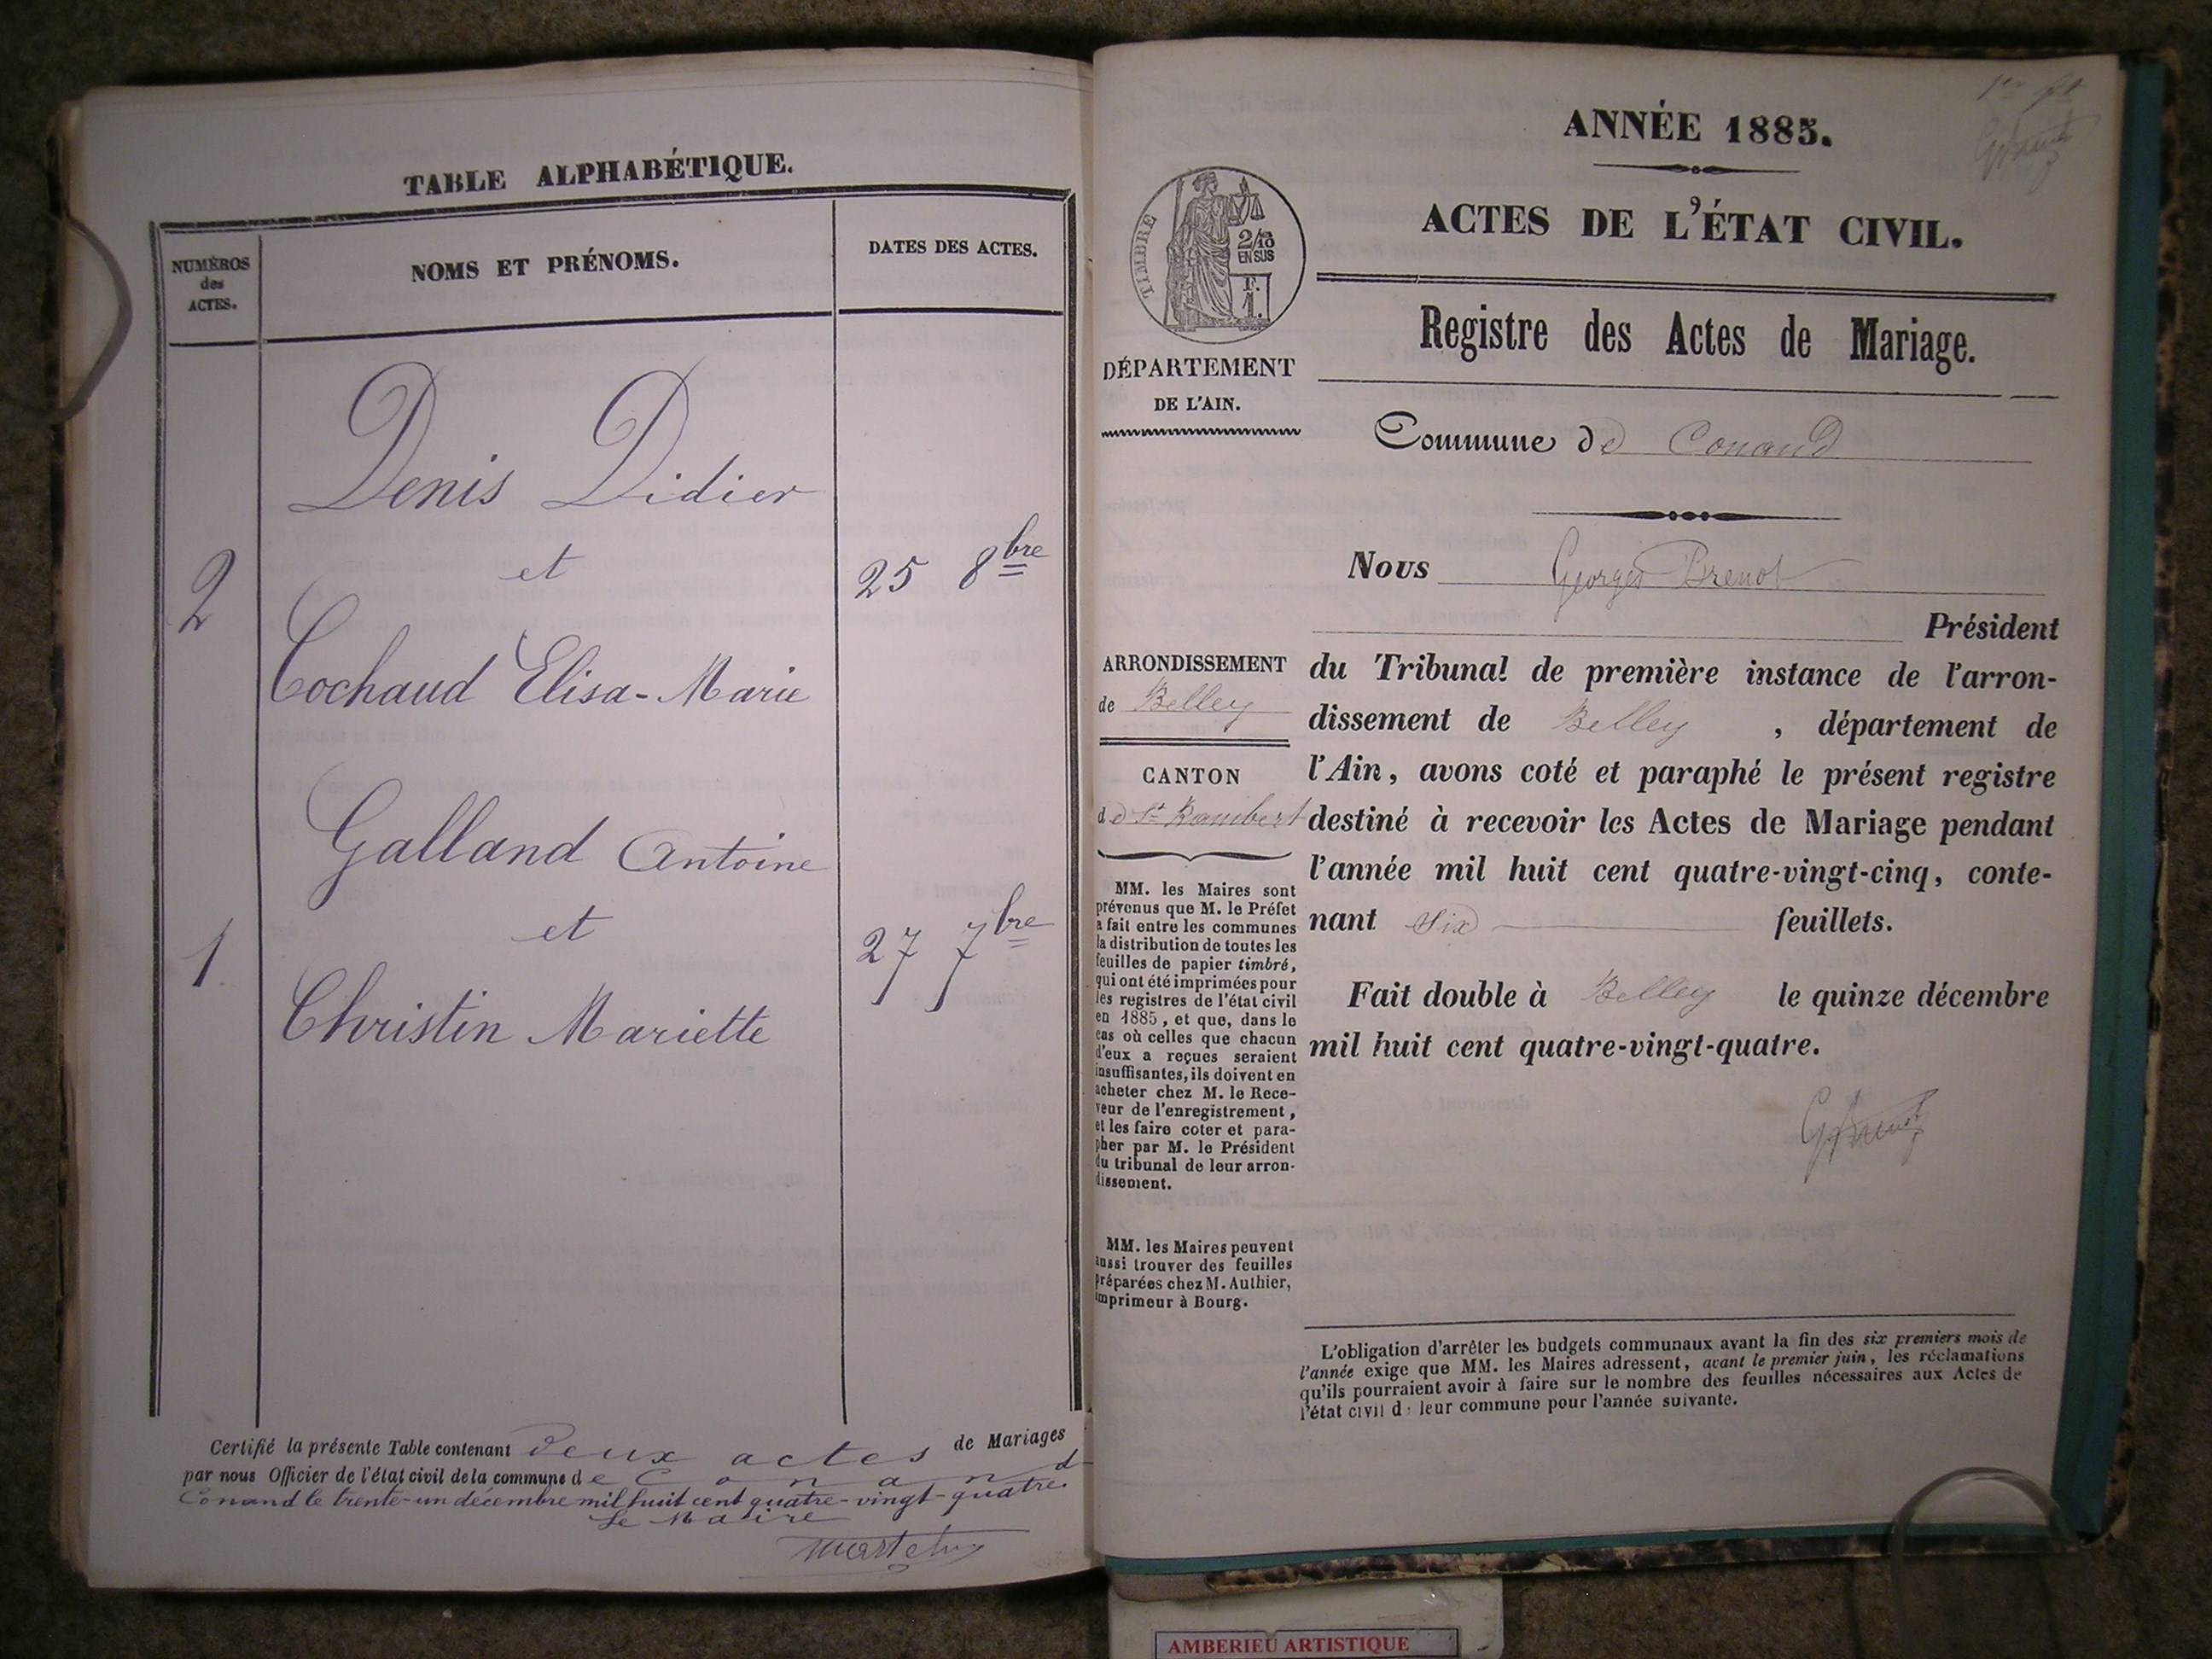 TABLE ALPHABÉTIQUE.
NUMÉROS
des
ACTES.
NOMS ET PRÉNOMS.
DATES DES ACTES.
Denis Didier
2 et 25 8bre
Cochaud Elisa-Marie
Galland Antoine
1 et 27 7bre
Christin Mariette
Certifié la présente Table contenant deux actes de Mariages
par nous Officier de l'état civil de la commune de Conand
Conand le trente-un décembre mil huit cent quatre-vingt-quatre.
Le Maire
ANNÉE 1885.
ACTES DE L'ÉTAT CIVIL.
TIMBRE
2/10
EN SUS
F.
1.
Registre des Actes de Mariage.
DÉPARTEMENT
DE L'AIN.
Commune de Conand
Nous Georges Brenot
Président
du Tribunal de première instance de l'arron-
dissement de Belley , département de
l'Ain, avons coté et paraphé le présent registre
destiné à recevoir les Actes de Mariage pendant
l'année mil huit cent quatre-vingt-cinq, conte-
nant six feuillets.
Fait double à Belley le quinze décembre
mil huit cent quatre-vingt-quatre.
ARRONDISSEMENT
de Belley
CANTON
de St Rambert
MM. les Maires sont
prévenus que M. le Préfet
a fait entre les communes
la distribution de toutes les
feuilles de papier timbré,
qui ont été imprimées pour
les registres de l'état civil
en 1885, et que, dans le
cas où celles que chacun
d'eux a reçues seraient
insuffisantes, ils doivent en
acheter chez M. le Rece-
veur de l'enregistrement,
et les faire coter et para-
pher par M. le Président
du tribunal de leur arron-
dissement.
MM. les Maires peuvent
aussi trouver des feuilles
préparées chez M. Authier,
imprimeur à Bourg.
L'obligation d'arrêter les budgets communaux avant la fin des six premiers mois de
l'année exige que MM. les Maires adressent, avant le premier juin, les réclamations
qu'ils pourraient avoir à faire sur le nombre des feuilles nécessaires aux Actes de
l'état civil d: leur commune pour l'année suivante.
AMBERIEU ARTISTIQUE